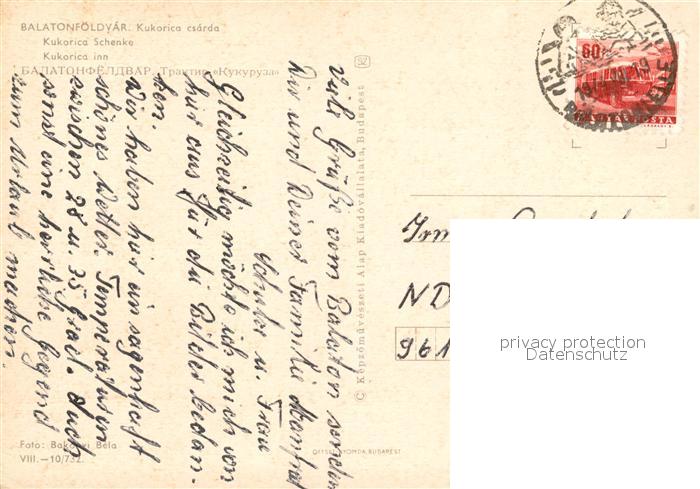 BALATONFÖLDVÁR. Kukorica csárda
Kukorica Schenke
Kukorica inn
БАЛАТОНФЕЛДВАР. Трактир «Кукуруза»
SZ
60f
MAGYAR POSTA
Viele Grüße vom Balaton senden
Dir und Deiner Familie Manfred
Schulze u. Frau
Gleichzeitig möchte ich mich von
hier aus für die Bilder bedan-
ken.
Wir haben hier ein sagenhaft
schönes Wetter. Temperaturen
zwischen 28 u. 35 Grad. Auch
sonst eine herrliche Gegend
zum Urlaub machen.
© Képzőművészeti Alap Kiadóvállalata, Budapest
Irm
ND
961
privacy protection
Datenschutz
Foto: Bakonyi Béla
VIII.—10/732.
OFFSET NYOMDA, BUDAPEST